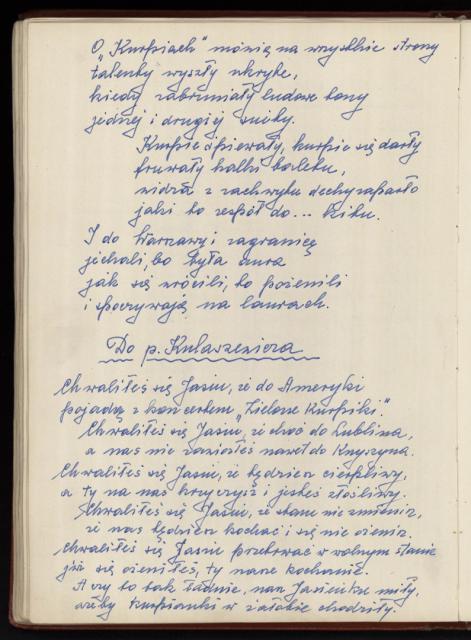 O „Kurpiach" mówią na wszystkie strony
talenty wyszły ukryte,
kiedy zabrzmiały ludowe tony
jednej i drugiej suity.
Kurpie śpiewały, kurpie się darły
fruwały halki baletu,
widza z zachwytu dech zaparło
jaki to zespół do... kitu.
I do Warszawy i zagranicę
jechali, bo była aura
jak się wrócili, to pożenili
i spoczywają na laurach.
Do p. Kulaszewicza
Chwaliłeś się Jasiu, że do Ameryki
pojadą z koncertem „Zielone Kurpiki."
Chwaliłeś się Jasiu, że choć do Lublina,
a nas nie zawiozłeś nawet do Knyszyna.
Chwaliłeś się Jasiu, że będziesz cierpliwy,
a ty na nas krzyczysz i jesteś złośliwy.
Chwaliłeś się Jasiu, że stanu nie zmienisz,
że nas będziesz kochać i się nie ożenisz,
chwaliłeś się Jasiu przetrwać w wolnym stanie
już się ożeniłeś, ty nasze kochanie.
A czy to tak ładnie, nasz Jasieńku miły,
żeby kurpianki w żałobie chodziły.